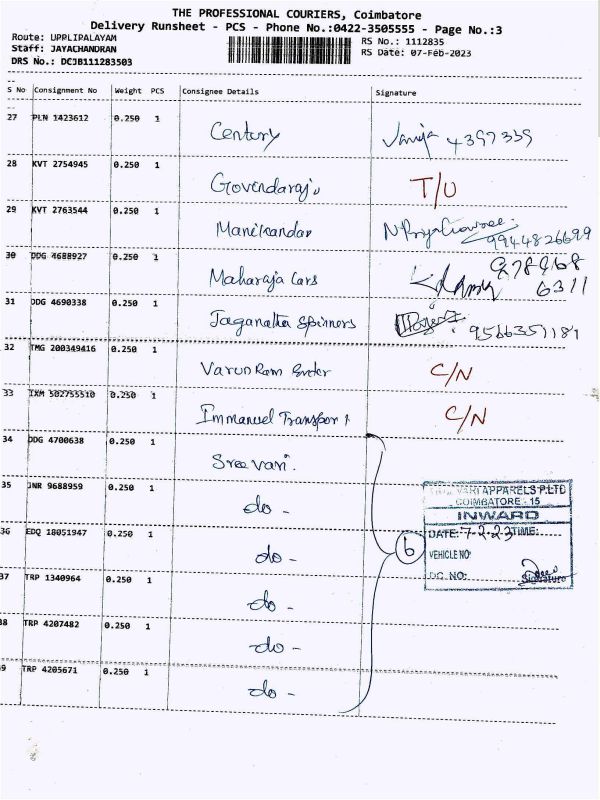 THE PROFESSIONAL COURIERS, Coimbatore
Delivery Runsheet - PCS - Phone No.:0422-3505555 - Page No.:3
Route: UPPLIPALAYAM
Staff: JAYACHANDRAN
DRS No.: DCJB111283503
RS No.: 1112835
RS Date: 07-Feb-2023
S No Consignment No Weight PCS Consignee Details Signature
27 PLN 1423612 0.250 1 Century 4397339
28 KVT 2754945 0.250 1 Govindaraju T/U
29 KVT 2763544 0.250 1 Manikandan 9944826699
30 DDG 4688927 0.250 1 Maharaja Cars 978468
6311
31 DDG 4690338 0.250 1 Jaganatha Spinners 9566351181
32 TMG 200349416 0.250 1 Varun Ram C/N
33 IXM 502755510 0.250 1 Immanuel Transport C/N
34 DDG 4700638 0.250 1 Sree vari.
35 JNR 9688959 0.250 1 do -
36 EDQ 18051947 0.250 1 do -
37 TRP 1340964 0.250 1 do -
38 TRP 4207482 0.250 1 do -
39 TRP 4205671 0.250 1 do -
6
VARI APPARELS P.LTD
COIMBATORE - 15
INWARD
DATE: 7-2-23 TIME:
VEHICLE NO
DC. NO:
Signature